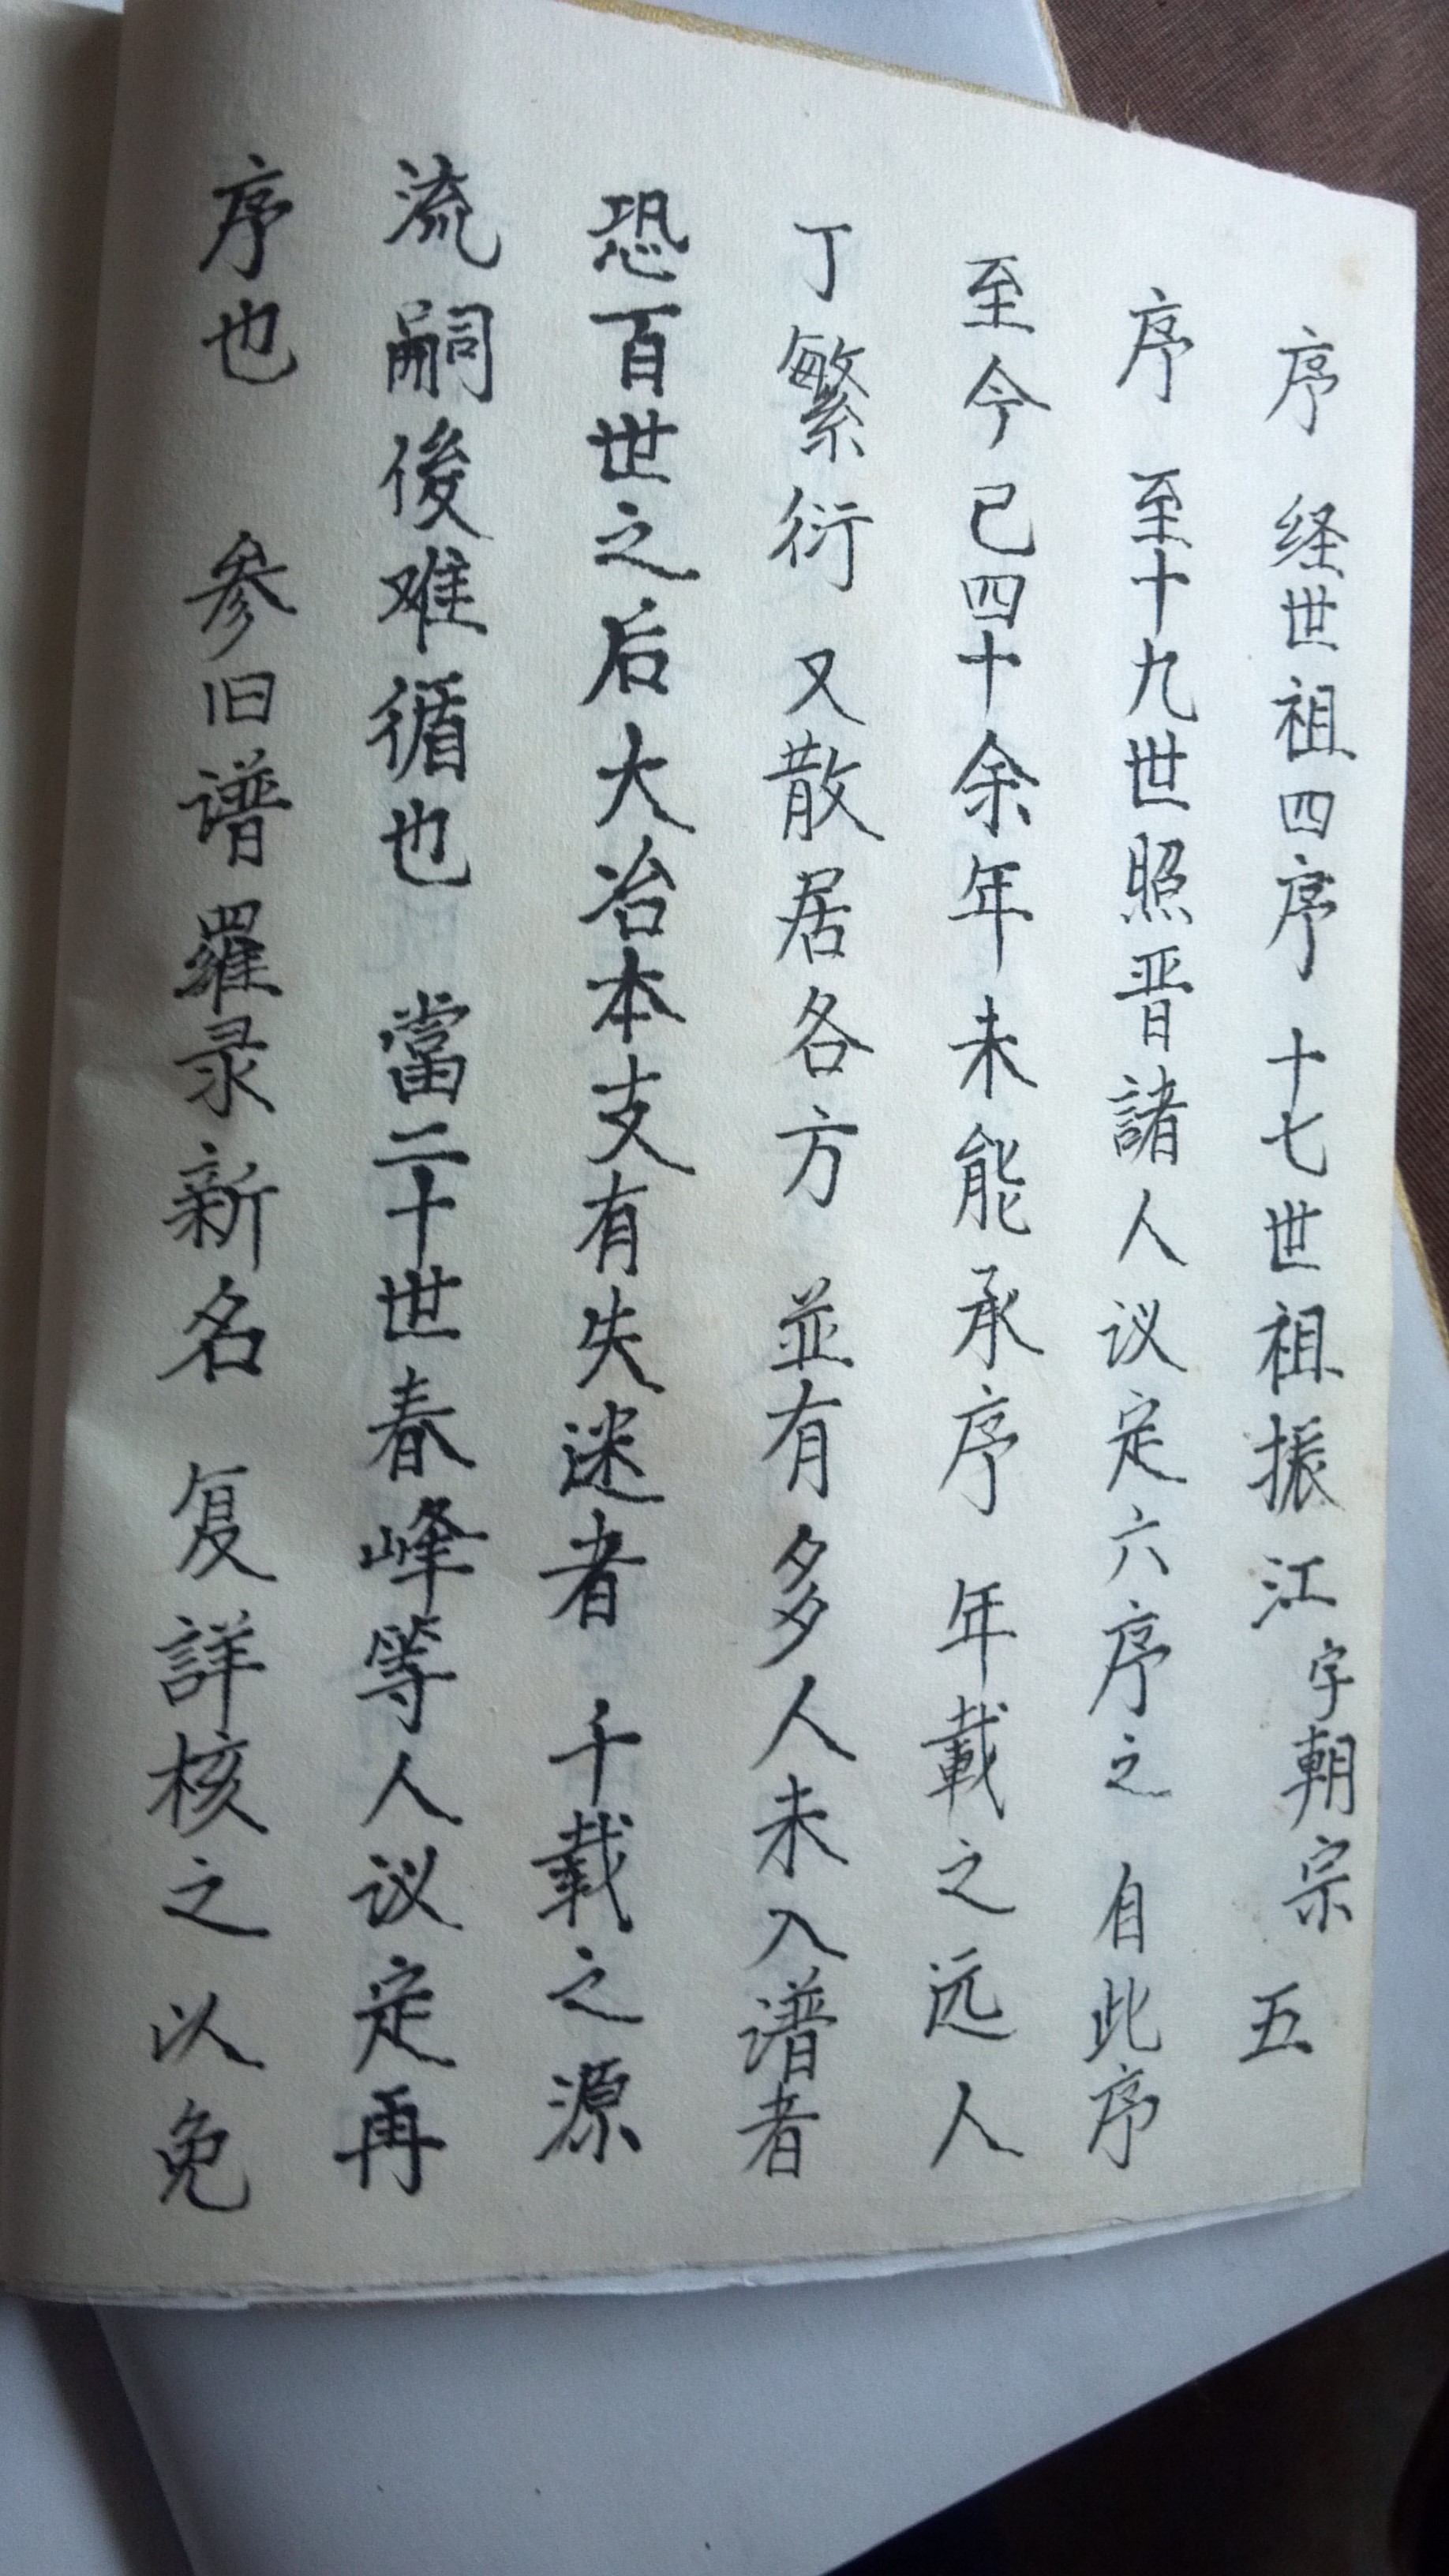 序 经世祖四序 十七世祖振江字朝宗 五
序 至十九世照晋諸人议定六序之 自此序
至今已四十余年未能承序 年載之远人
丁繁衍 又散居各方 並有多人未入谱者
恐百世之后大冶本支有失迷者 千载之源
流嗣後难循也 當二十世春峰等人议定再
序也 参旧谱羅录新名 复詳核之以免